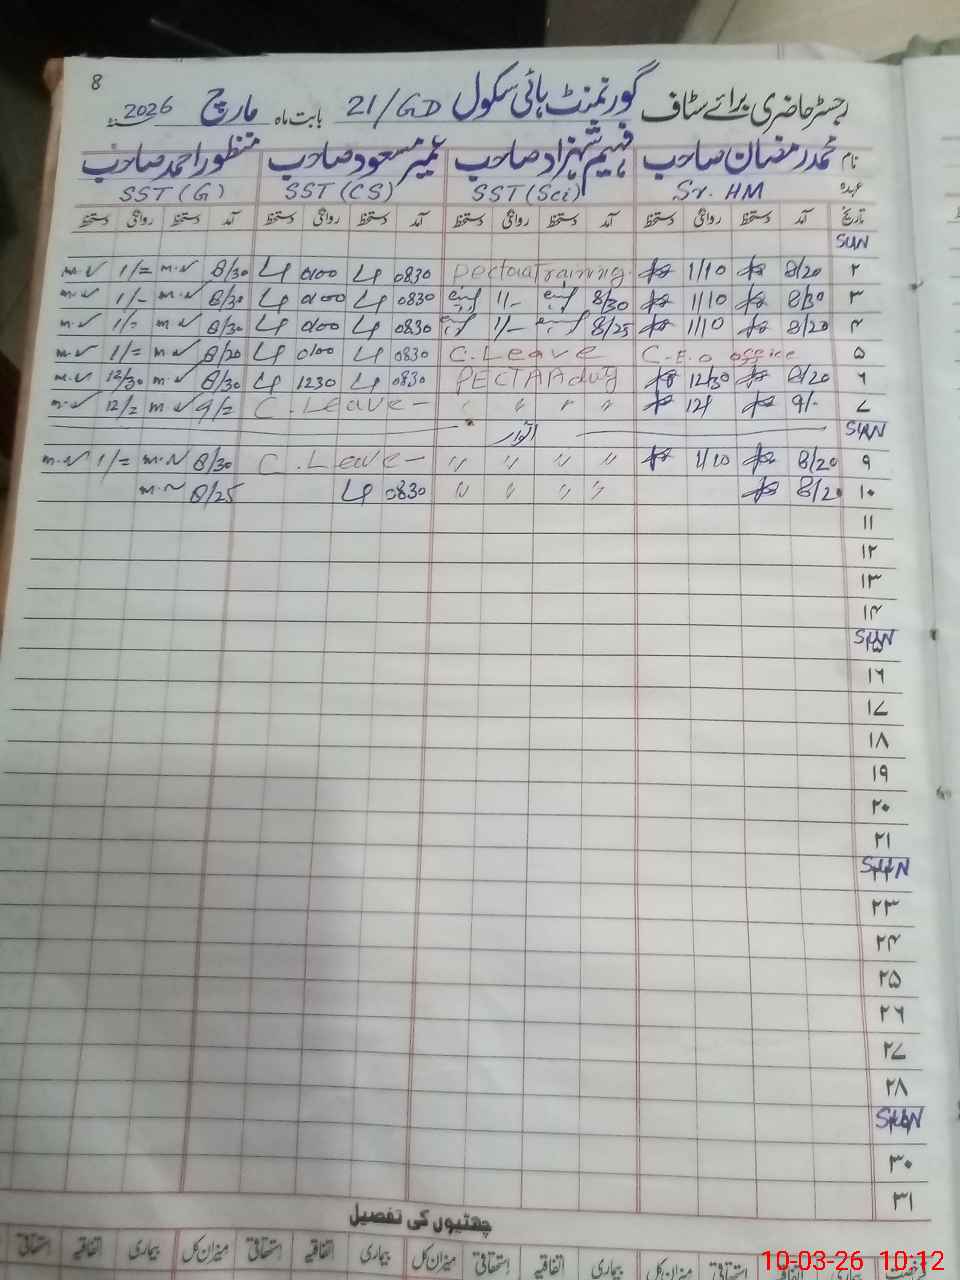 8
رجسٹر حاضری برائے سٹاف گورنمنٹ ہائی سکول 21/GD بابت ماہ مارچ 2026
نام محمد رمضان صاحب فہیم شہزاد صاحب عمیر مسعود صاحب منظور احمد صاحب
عہدہ Sr. HM SST (Sci) SST (CS) SST (G)
تاریخ آمد دستخط روانگی دستخط آمد دستخط روانگی دستخط آمد دستخط روانگی دستخط آمد دستخط روانگی دستخط
SUN
۲ 8/20 1/10 Pectaa Training. 0830 0100 8/30 m.N 1/= m.N
۳ 8/30 1/10 8/30 1/- 0830 0100 8/30 m.N 1/- m.N
۴ 8/20 1/10 8/25 1/- 0830 0100 8/30 m.N 1/= m.N
۵ C.E.O office C. Leave 0830 0100 8/20 m.N 1/= m.N
۶ 8/20 12/30 PECTAA duty 0830 1230 8/30 m.N 12/30 m.N
۷ 9/- 12/ 〃 〃 〃 〃 C. Leave - 9/= m.N 12/= m.N
SUN اتوار
۹ 8/20 1/10 〃 〃 〃 〃 C. Leave - 8/30 m.N 1/= m.N
۱۰ 8/20 〃 〃 〃 〃 0830 8/25 m.N
۱۱
۱۲
۱۳
۱۴
SUN
۱۶
۱۷
۱۸
۱۹
۲۰
۲۱
SUN
۲۳
۲۴
۲۵
۲۶
۲۷
۲۸
SUN
۳۰
۳۱
چھٹیوں کی تفصیل
بیماری اتفاقیہ استحقاقی میزان کل بیماری اتفاقیہ استحقاقی میزان کل بیماری اتفاقیہ استحقاقی میزان کل بیماری اتفاقیہ استحقاقی
10-03-26 10:12